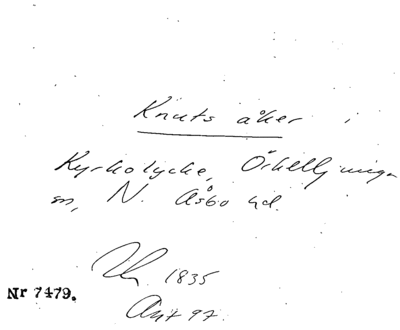 Knuts åker i
Kyrkolycke, Örkelljunga
sn, N. Åsbo hd.
1835
Nr 7479.
Ant 97.